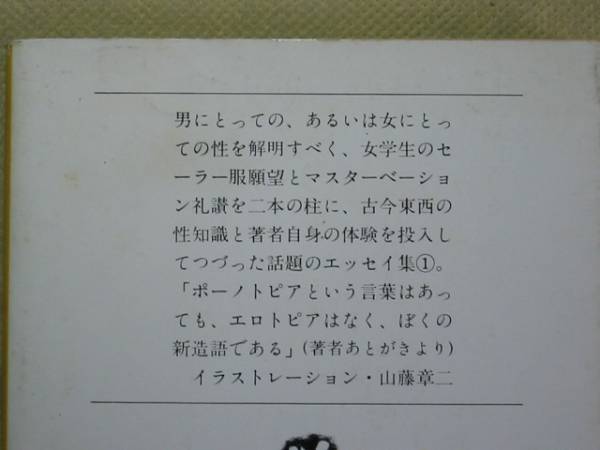 男にとっての、あるいは女にとっ
ての性を解明すべく、女学生のセ
ーラー服願望とマスターベーショ
ン礼讃を二本の柱に、古今東西の
性知識と著者自身の体験を投入し
てつづった話題のエッセイ集①。
「ポーノトピアという言葉はあっ
ても、エロトピアはなく、ぼくの
新造語である」(著者あとがきより)
イラストレーション・山藤章二